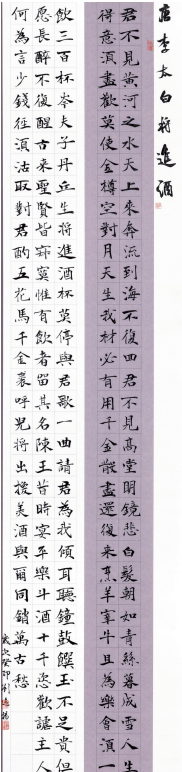 唐李太白將進酒
君不見黃河之水天上來奔流到海不復回君不見高堂明鏡悲白髮朝如青絲暮成雪人生
得意須盡歡莫使金樽空對月天生我材必有用千金散盡還復來烹羊宰牛且為樂會須一
飲三百杯岑夫子丹丘生將進酒杯莫停與君歌一曲請君為我傾耳聽鐘鼓饌玉不足貴但
願長醉不復醒古來聖賢皆寂寞惟有飲者留其名陳王昔時宴平樂斗酒十千恣歡謔主人
何為言少錢徑須沽取對君酌五花馬千金裘呼兒將出換美酒與爾同銷萬古愁
歲次癸卯